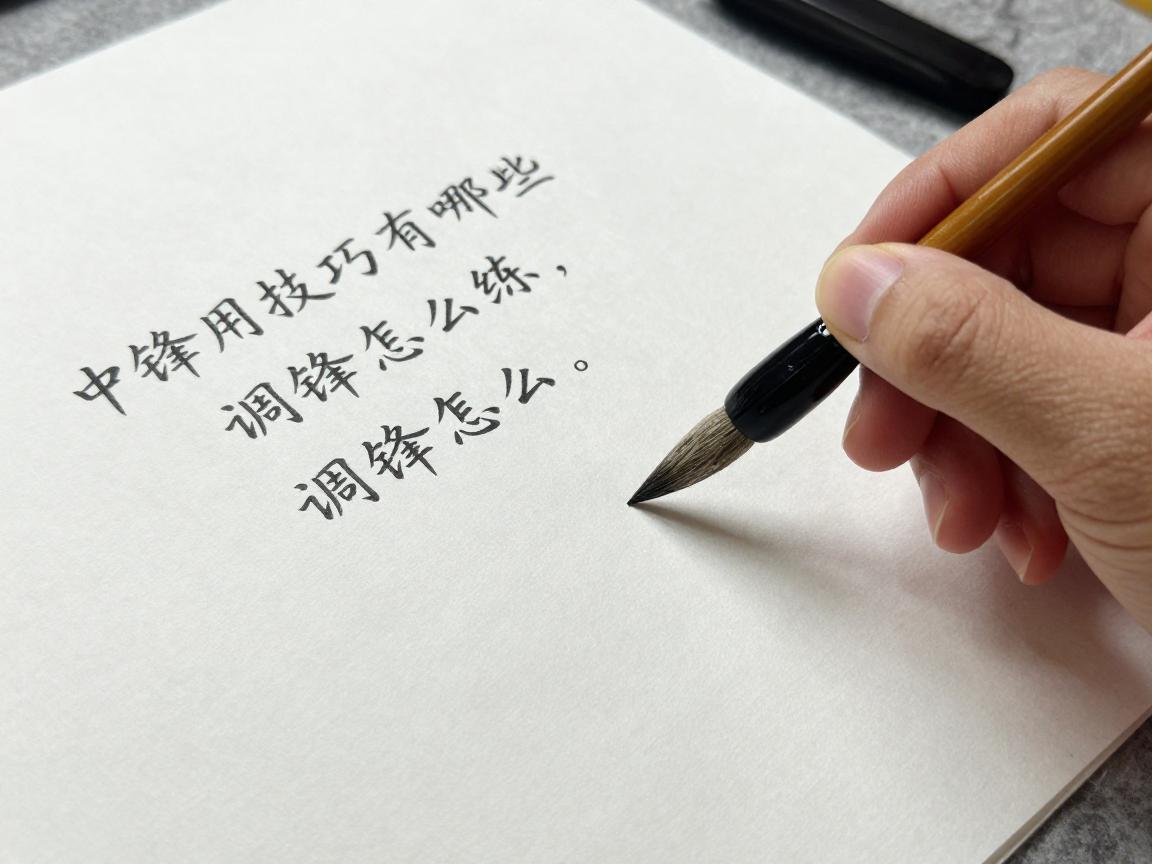 中锋用技巧有哪些
调锋怎么练，
调锋怎么。